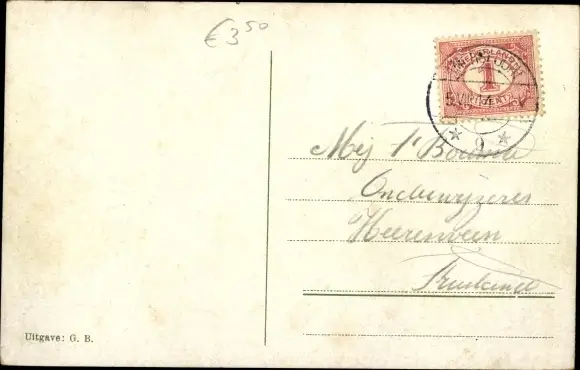 € 3 50
NEDERLAND
1
CENT
9
Mej
Onderwyzeres
Heerenveen
Friesland
Uitgave: G. B.